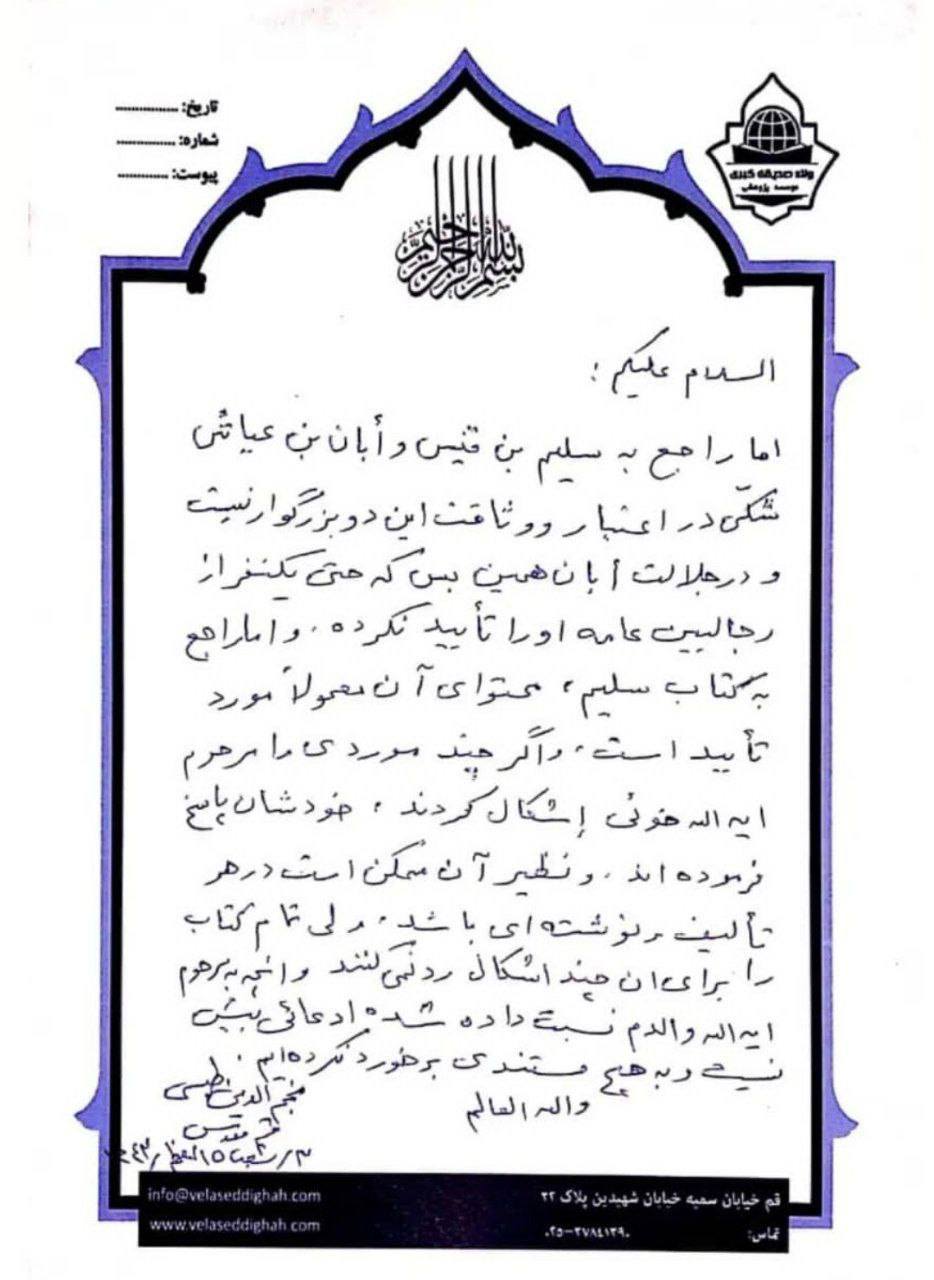 تاریخ: ................
شماره: ................
پیوست: ............
ولاء صدیقه کبری
موسسه پژوهشی
بسم الله الرحمن الرحیم
السلام علیکم :
اما راجع به سلیم بن قیس و أبان بن عیاش
شکّی در اعتبار و وثاقت این دو بزرگوار نیست
و در جلالت أبان همین بس که حتی یکنفر از
رجالیین عامه او را تأیید نکرده . و اما راجع
به کتاب سلیم ، محتوای آن معمولاً مورد
تأیید است ، و اگر چند موردی را مرحوم
ایه اله خوئی إشکال کردند ، خودشان پاسخ
فرموده اند . و نظیر آن ممکن است در هر
تألیف و نوشته ای باشد ، ولی تمام کتاب
را برای ان چند اشکال رد نمی کنند و انچه به مرحوم
ایه اله والدم نسبت داده شده ادعائی بیش
نیست و به هیچ مستندی برخورد نکرده ایم .
واله العالم
نجم الدین طبسی
قم مقدس
info@velaseddighah.com
www.velaseddighah.com
قم خیابان سمیه خیابان شهیدین پلاک ۲۲
تماس: ۰۲۵-۳۷۸۴۱۳۹۰